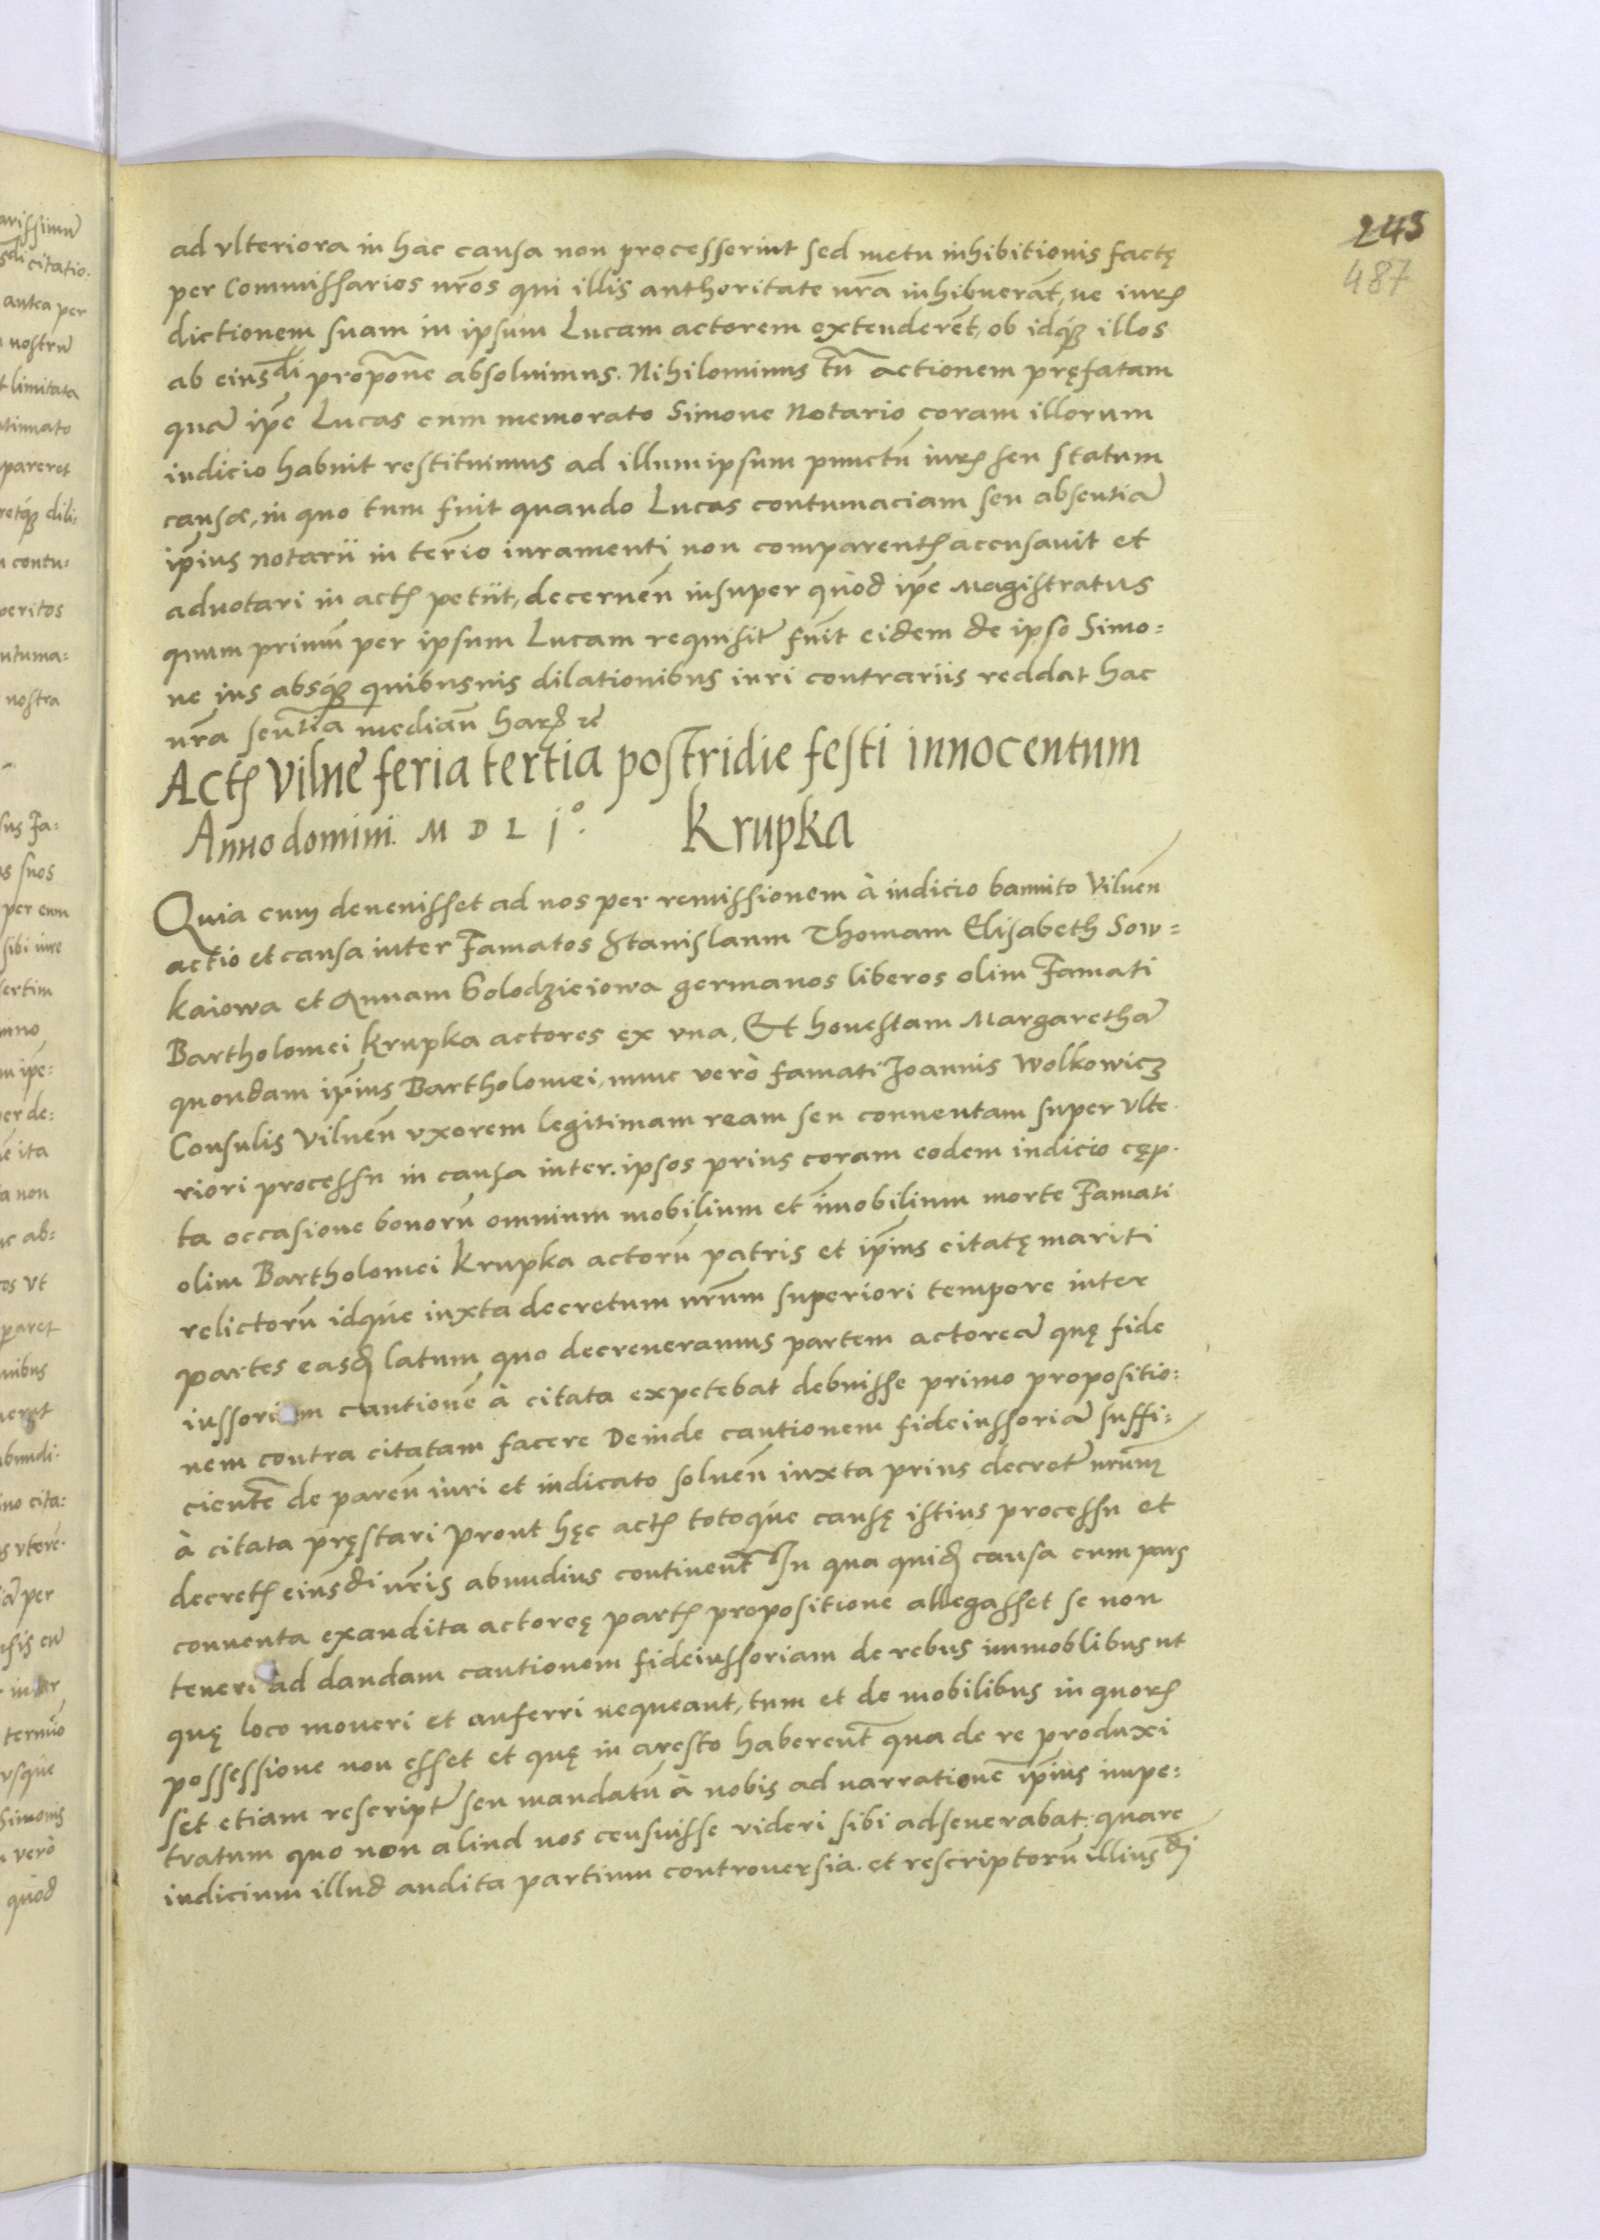 243
487
ad vlteriora in hac causa non processerint sed metu inhibitionis factę
per Commissarios nr̃os qui illis authoritate nr̃a inhibuerãt, ne iurꝭ
dictionem suam in ipsum Lucam actorem extenderẽt, ob idq́ꝫ illos
ab eiusdi propõne absoluimus. Nihilominus tñ actionem pręfatam
quã ip̃e Lucas cum memorato Simone Notario coram illorum
iudicio habuit restituimus ad illum ipsum punctũ iurꝭ seu statum
causæ, in quo tum fuit quando Lucas contumaciam seu absentiã
ip̃ius Notarii in ter̃io iuramenti non comparentꝭ accusauit et
adnotari in actꝭ petiit, decerneñ insuper quòd ip̃e Magistratus
quum primũ per ipsum Lucam requisit̃ fũit eidem de ipso Simo=
ne ius absq́ꝫ quibusuis dilationibus iuri contrariis reddat hac
nr̃a sentĩa mediañ harꝝ ꝛc̃
Actꝭ Vilnę feria tertia postridie festi innocentum
Anno domini. M D L j°. Krupka
Quia cum deuenisset ad nos per remissionem à iudicio bannito Vilneñ
actio et causa inter Famatos Stanislaum Thomam Elisabeth Sow=
kaiowa et Annam Golodzieiowa germanos liberos olim Famati
Bartholomei Krupka actores ex vna, Et honestam Margarethã
quondam ip̃ius Bartholomei, nunc verò famati Joannis Wolkowicz
Consulis Vilneñ vxorem legitimam ream seu conuentam super vlte
riori processu in causa inter ipsos prius coram eodem iudicio cęp
ta occasione bonorũ omnium mobilium et im̃obilium morte Famati
olim Bartholomei Krupka actorũ patris et ip̃ius citatę mariti
relictorũ idque iuxta decretum nr̃um superiori tempore inter
partes easꝺ latum quo decreueramus partem actoreã quę fide
iussoriam cautionẽ à citata expetebat debuisse primo propositio=
nem contra citatam facere Deinde cautionem fideiussoriã suffi=
cientẽ de pareñ iuri et iudicato solueñ iuxta prius decret̃ nr̃um
à citata pręstari Prout hęc actꝭ totoque causę istius processu et
decretꝭ eiusdi nr̃is abundius continent̃ In qua quiꝺ causa cum pars
conuenta exaudita actoreę partꝭ propositione allegasset se non
teneri ad dandam cautionem fideiussoriam de rebus immoblibus ut
quę loco moueri et auferri nequeant, tum et de mobilibus in quorꝭ
possessione non esset et quę in aresto haberent̃ qua de re produxi
set etiam rescript̃ seu mandatũ à nobis ad narrationẽ ip̃ius impe=
tratum quo non aliud nos censuisse videri sibi adseuerabat: quare
iudicium illud audita partium controuersia et rescriptorũ illiusdi